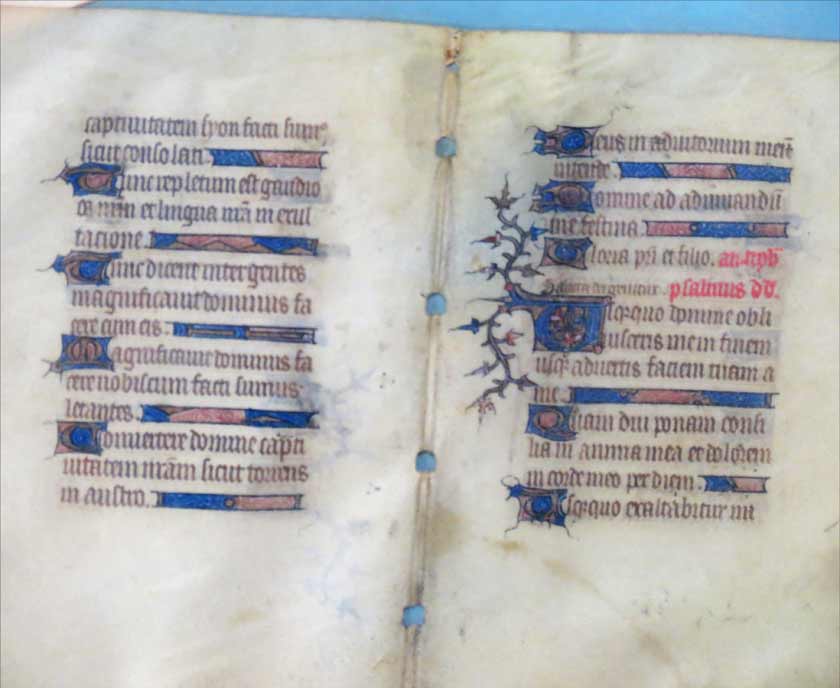 captivitatem syon facti sumꝰ
sicut consolati.
Tunc repletum est gaudio
os nrm et lingua nra in exul
tacione.
Tunc dicent inter gentes
magnificavit dominus fa
cere cum eis.
Magnificavit dominus fa
cere nobiscum facti sumus
letantes.
Convertere domine capti
vitatem nram sicut torrens
in austro.
Deus in adiutorium meū
intende
Domine ad adiuvandū
me festina
Gloria pri et filio.
psalmus dd.
Usquequo domine obli
visceris me in finem
usqꝫ advertis faciem tuam a
me
Quam diu ponam consi
lia in anima mea et dolorem
in corde meo per diem.
Usqꝫquo exaltabitur ini